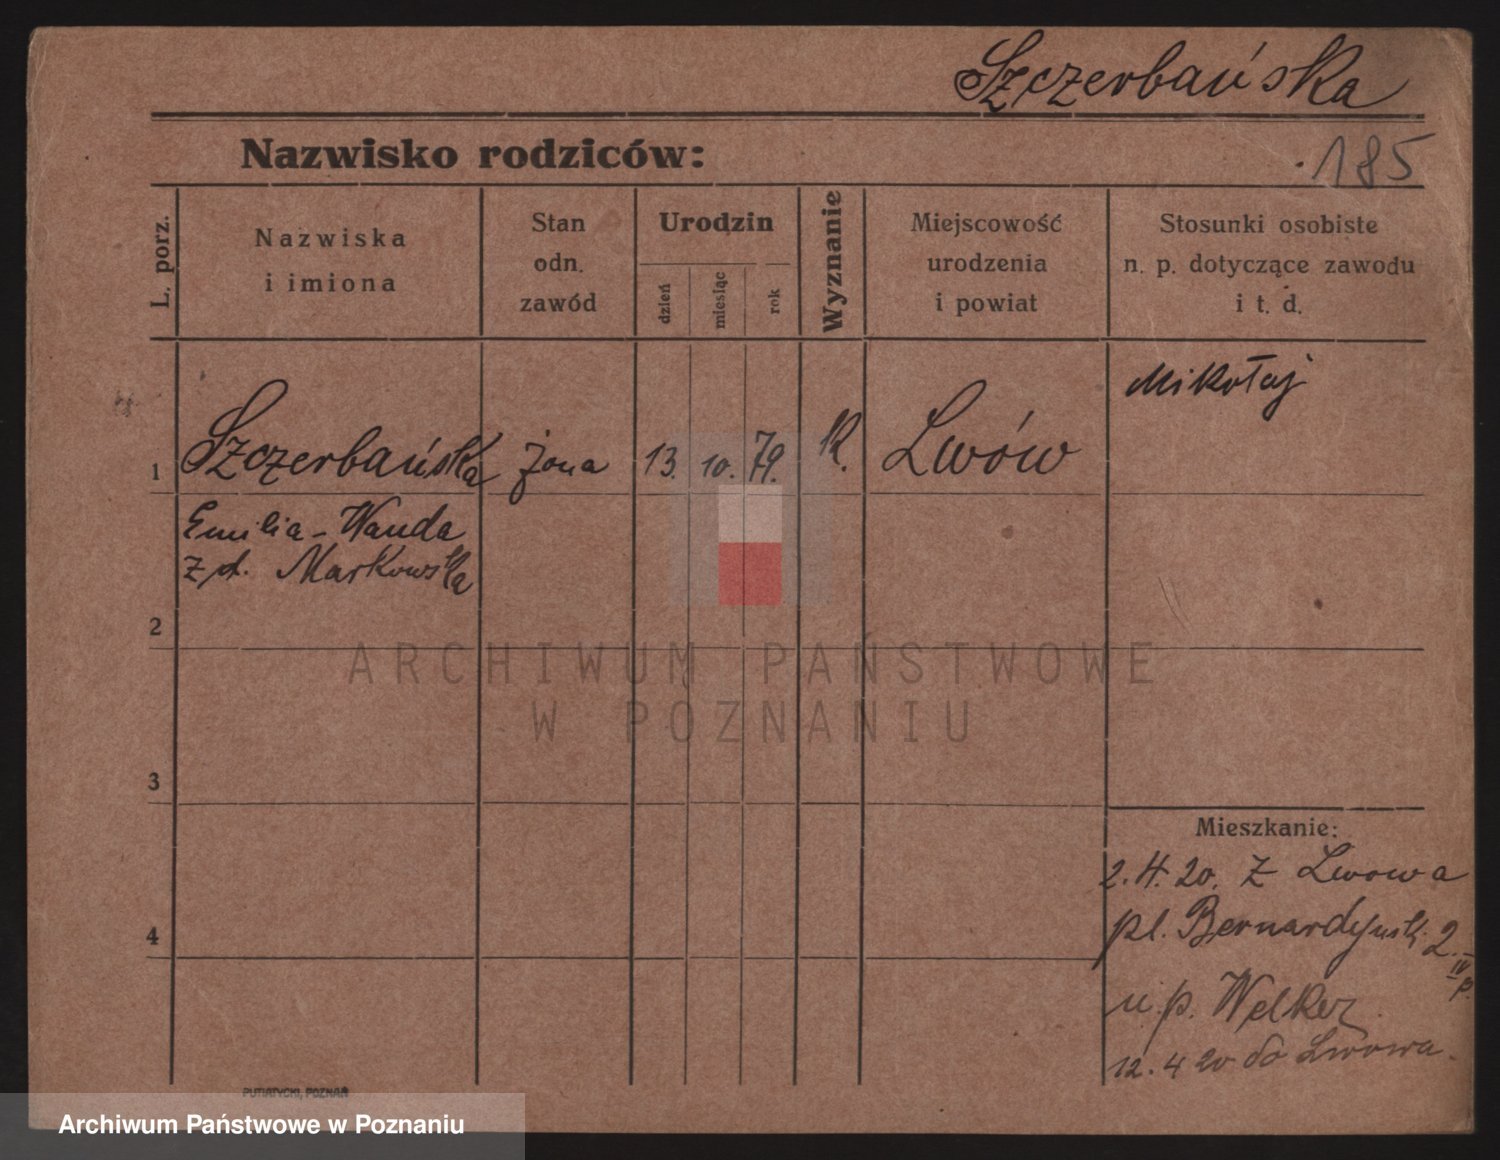 Szczerbańska
Nazwisko rodziców:
185
L. porz.
Nazwiska
i imiona
Stan
odn.
zawód
Urodzin
dzień
miesiąc
rok
Wyznanie
Miejscowość
urodzenia
i powiat
Stosunki osobiste
n. p. dotyczące zawodu
i t. d.
Mikołaj
1 Szczerbańska żona 13. 10. 79. K. Lwów
Emilia-Wanda
z d. Markowska
2
3
4
Mieszkanie:
2.4.20. z Lwowa
pl. Bernardyński 2.
IV p.
u p. Welker
12.4 20 do Lwowa.
PUTIATYCKI, POZNAŃ
ARCHIWUM PAŃSTWOWE
W POZNANIU
Archiwum Państwowe w Poznaniu